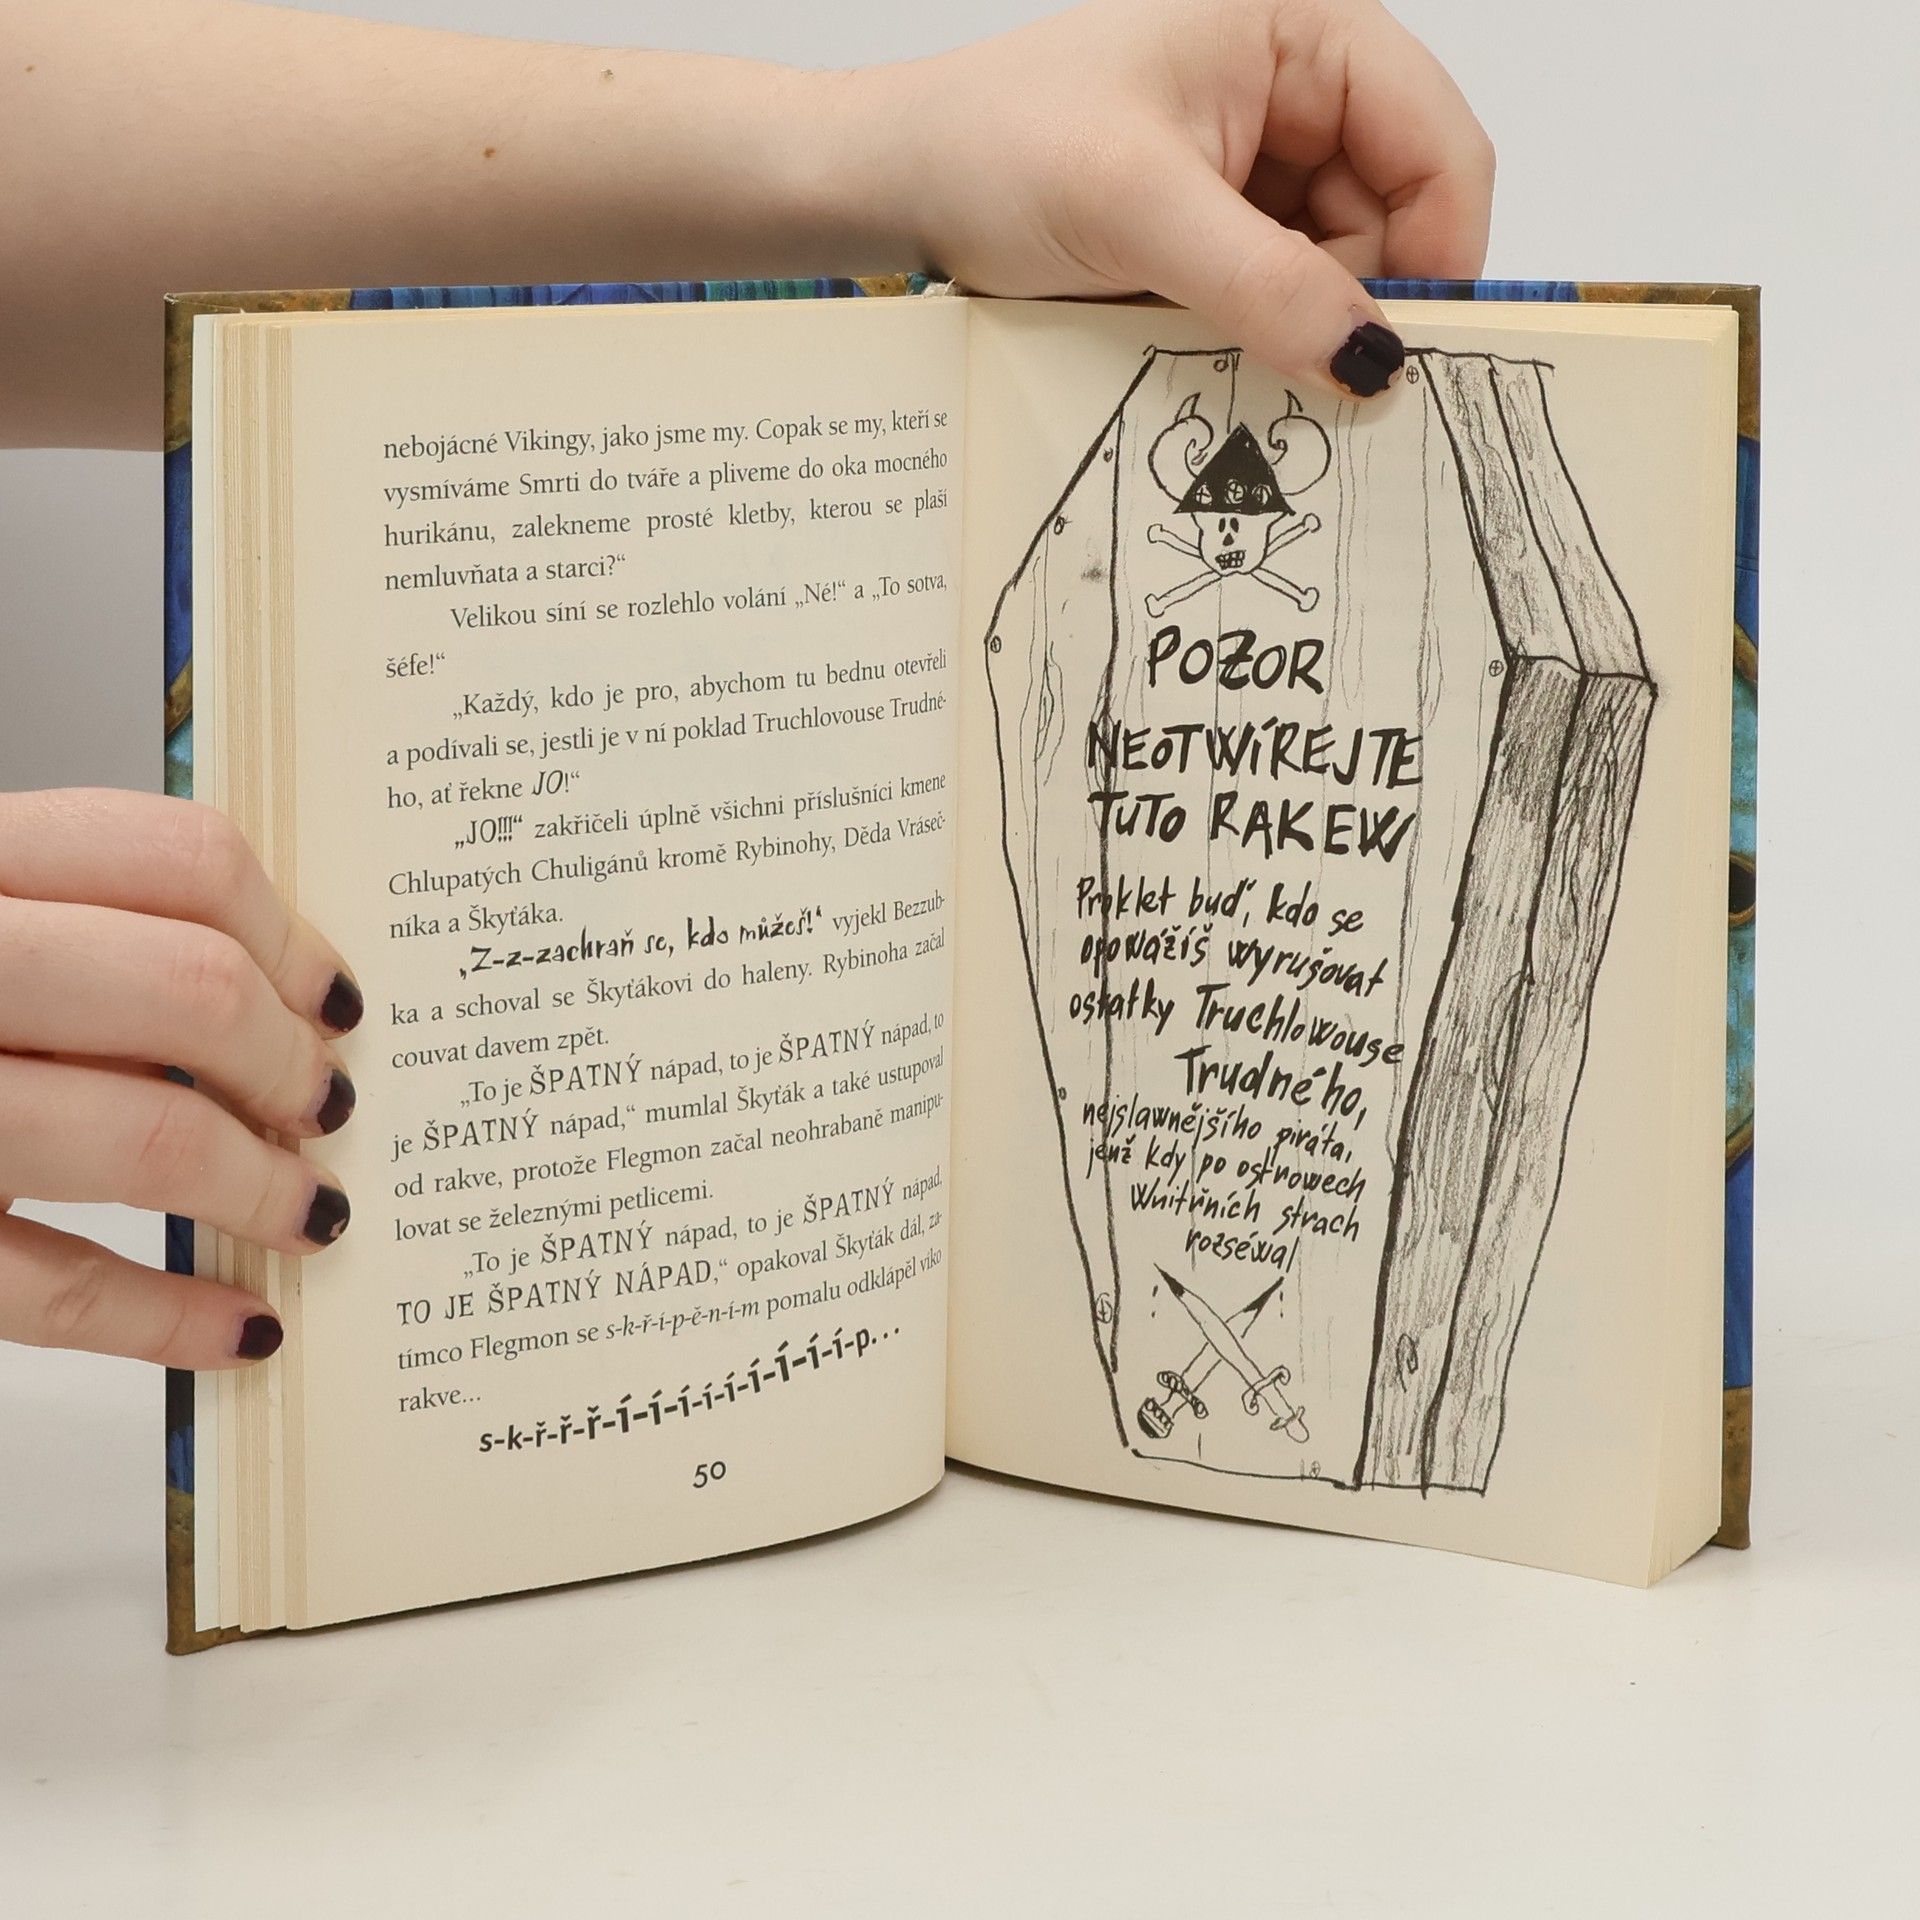 nebojácné Vikingy, jako jsme my. Copak se my, kteří se
vysmíváme Smrti do tváře a pliveme do oka mocného
hurikánu, zalekneme prosté kletby, kterou se plaší
nemluvňata a starci?“
Velikou síní se rozlehlo volání „Né!“ a „To sotva,
šéfe!“
„Každý, kdo je pro, abychom tu bednu otevřeli
a podívali se, jestli je v ní poklad Truchlovouse Trudné-
ho, ať řekne JO!“
„JO!!!“ zakřičeli úplně všichni příslušníci kmene
Chlupatých Chuligánů kromě Rybinohy, Děda Vráseč-
níka a Škyťáka.
„Z-z-zachraň se, kdo můžeš!“ vyjekl Bezzub-
ka a schoval se Škyťákovi do haleny. Rybinoha začal
couvat davem zpět.
„To je ŠPATNÝ nápad, to je ŠPATNÝ nápad, to
je ŠPATNÝ nápad,“ mumlal Škyťák a také ustupoval
od rakve, protože Flegmon začal neohrabaně manipu-
lovat se železnými petlicemi.
„To je ŠPATNÝ nápad, to je ŠPATNÝ nápad,
TO JE ŠPATNÝ NÁPAD,“ opakoval Škyťák dál, za-
tímco Flegmon se s-k-ř-í-p-ě-n-í-m pomalu odklápěl víko
rakve...
s-k-ř-ř-ř-í-í-í-í-í-í-í-í-í-í-p...
50
POZOR
NEOTWÍREJTE
TUTO RAKEW
Proklet buď, kdo se
opowážíš wyrušovat
ostatky Truchlowouse
Trudného,
nejslawnějšího piráta,
jenž kdy po ostrowech
Wnitřních strach
rozséwal